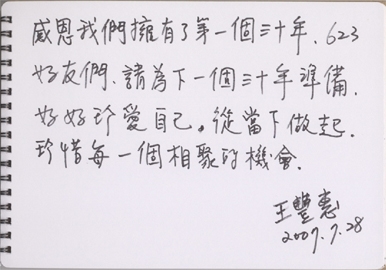 感恩我們擁有了第一個三十年、623
好友們、請為下一個三十年準備、
好好珍愛自己。從當下做起、
珍惜每一個相聚的機會、
王豐惠
2007.7.28